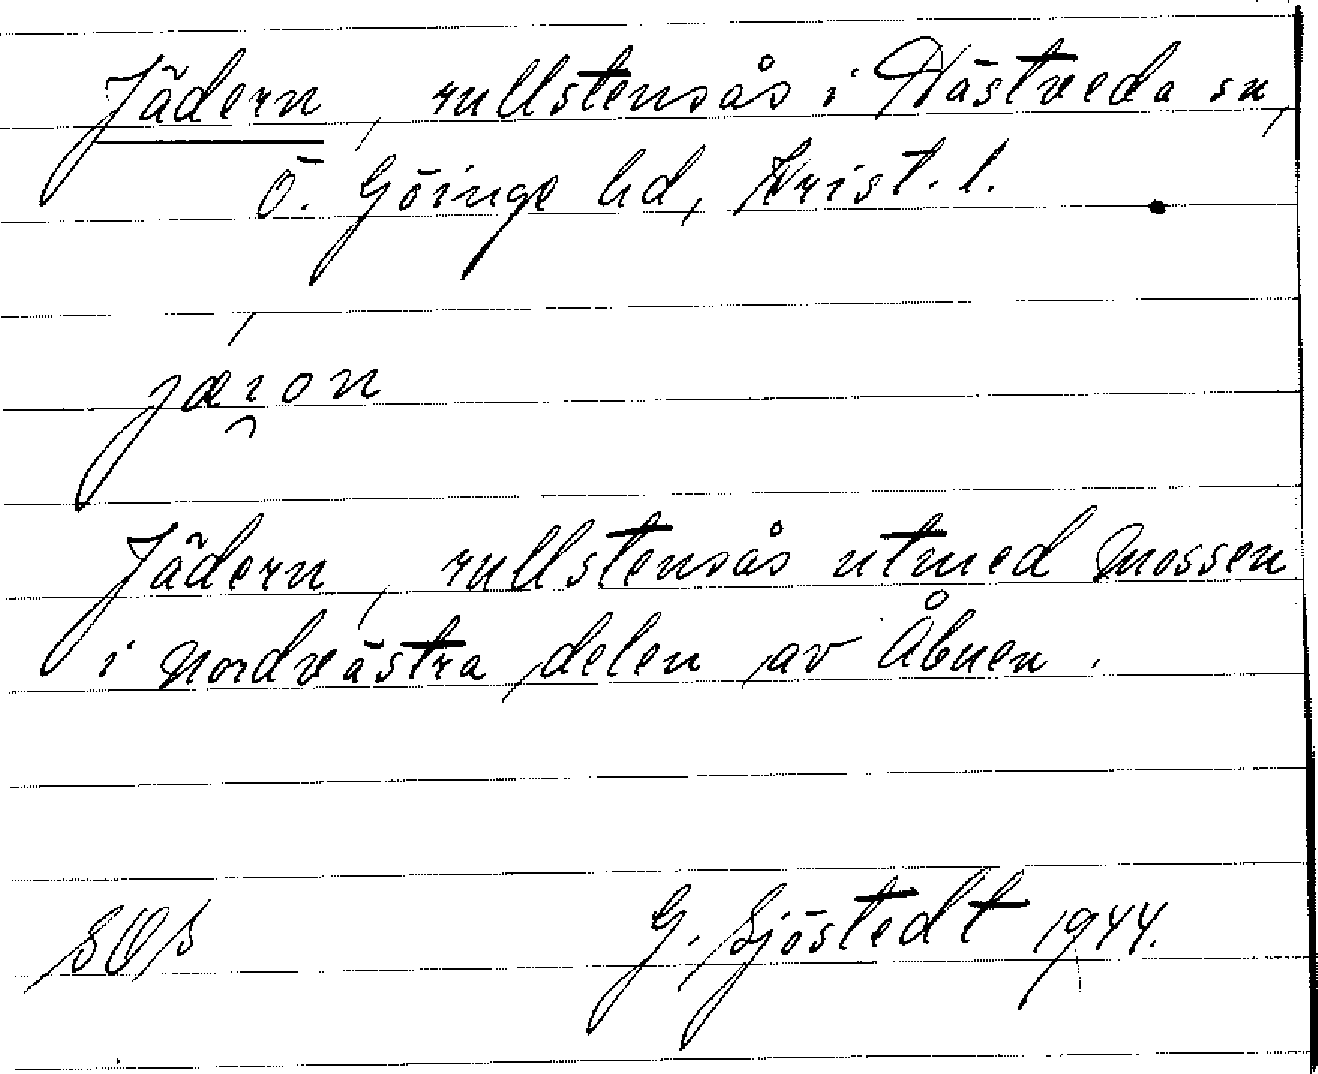 Jädern, rullstensås i Hästveda sn,
Ö. Göinge hd, Krist. l.
jæɪon
Jädern, rullstensås utmed mossen
i nordvästra delen av Åbuen.
SOS G. Sjöstedt 1944.